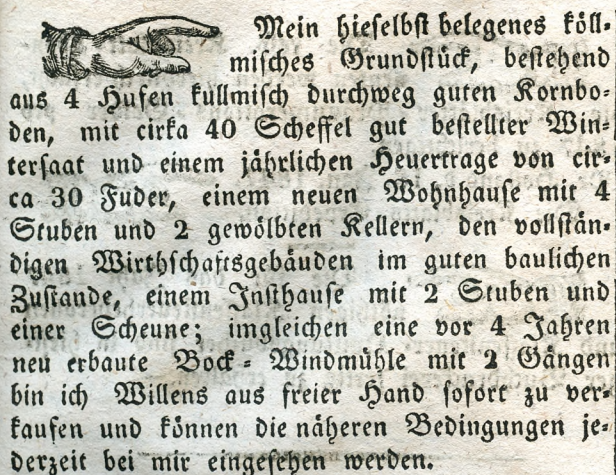 Mein hieselbst belegenes köll-
misches Grundstück, bestehend
aus 4 Hufen kullmisch durchweg guten Kornbo-
den, mit cirka 40 Scheffel gut bestellter Win-
tersaat und einem jährlichen Heuertrage von cir-
ca 30 Fuder, einem neuen Wohnhause mit 4
Stuben und 2 gewölbten Kellern, den vollstän-
digen Wirthschaftsgebäuden im guten baulichen
Zustande, einem Insthause mit 2 Stuben und
einer Scheune; imgleichen eine vor 4 Jahren
neu erbaute Bock-Windmühle mit 2 Gängen
bin ich Willens aus freier Hand sofort zu ver-
kaufen und können die näheren Bedingungen je-
derzeit bei mir eingesehen werden.